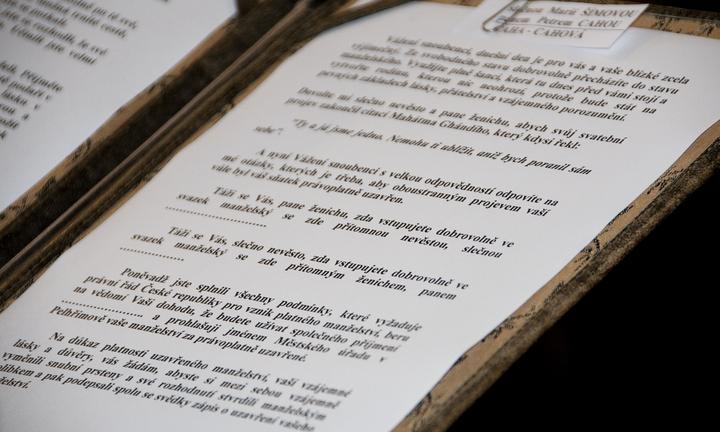 Marií ŠÍMOVOU
Petrem CAHOU
CAHA - CAHOVÁ
Vážení snoubenci, dnešní den je pro vás a vaše blízké zcela
výjimečný. Ze svobodného stavu dobrovolně přecházíte do stavu
manželského. Využijte plně šanci, která tu dnes před vámi stojí a
vytvořte rodinu, kterou nic neohrozí, protože bude stát na
pevných základech lásky, přátelství a vzájemného porozumění.
Dovolte mi slečno nevěsto a pane ženichu, abych svůj svatební
projev zakončil citací Mahátma Ghándího, který kdysi řekl:
"Ty a já jsme jedno. Nemohu ti ublížit, aniž bych poranil sám
sebe".
A nyní Vážení snoubenci s velkou odpovědností odpovíte na
mé otázky, kterých je třeba, aby oboustranným projevem vaší
vůle byl váš sňatek právoplatně uzavřen.
Táži se Vás, pane ženichu, zda vstupujete dobrovolně ve
svazek manželský se zde přítomnou nevěstou, slečnou
........................
Táži se Vás, slečno nevěsto, zda vstupujete dobrovolně ve
svazek manželský se zde přítomným ženichem, panem
................
Poněvadž jste splnili všechny podmínky, které vyžaduje
právní řád České republiky pro vznik platného manželství, beru
na vědomí Vaši dohodu, že budete užívat společného příjmení
.................... a prohlašuji jménem Městského úřadu v
Pelhřimově vaše manželství za právoplatně uzavřené.
Na důkaz platnosti uzavřeného manželství, vaší vzájemné
lásky a důvěry, vás žádám, abyste si mezi sebou vzájemně
vyměnili snubní prsteny a své rozhodnutí stvrdili manželským
polibkem a pak podepsali spolu se svědky zápis o uzavření vašeho